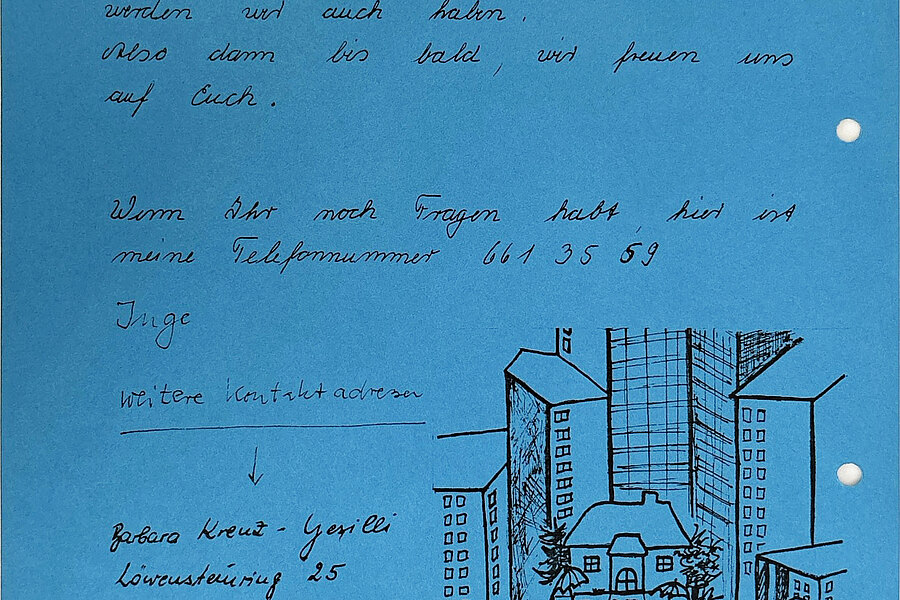 werden wir auch haben.
Also dann bis bald, wir freuen uns
auf Euch.
Wenn Ihr noch Fragen habt, hier ist
meine Telefonnummer 661 35 59
Inge
weitere Kontaktadressen
Barbara Kreuz - Yezilli
Löwensteinring 25